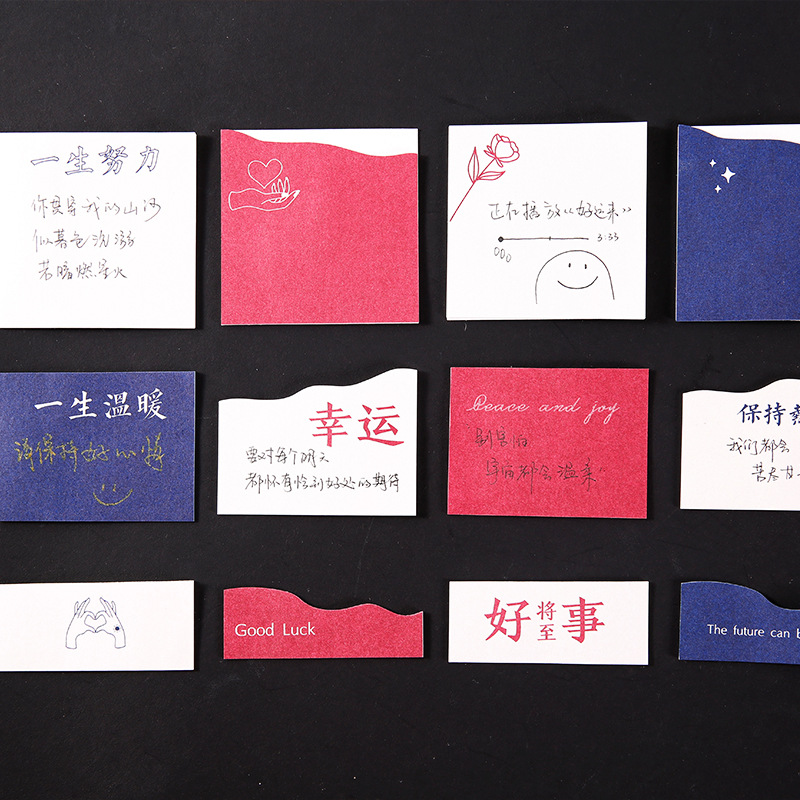 一生努力
你是穿我的山河
似暮色沉溺
若暗燃星火
正在播放《好运来》
3:33
一生温暖
请保持好心情
幸运
要对每个明天
都怀有恰到好处的期待
Peace and joy
宇宙都会温柔
保持热
我们都会
苦尽甘
Good Luck
好将至事
The future can b